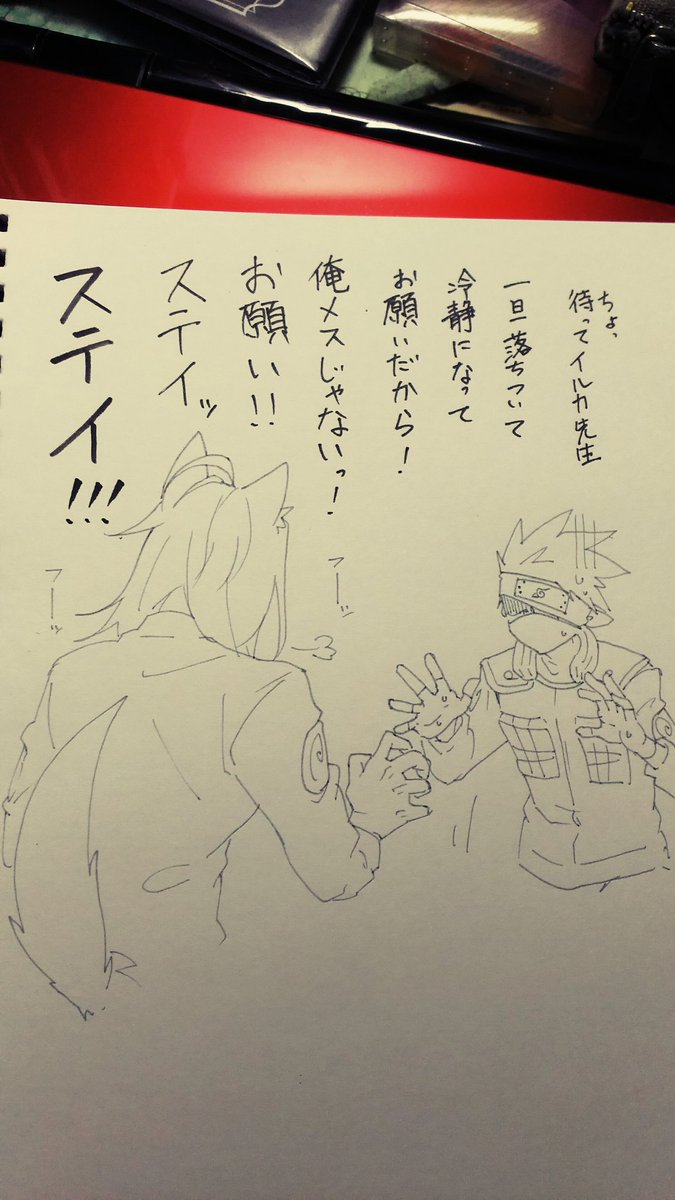 ちょっ
待ってイルカ先生
一旦落ちついて
冷静になって
お願いだから!
俺メスじゃないっ!
お願い!!
スティッ
スティ!!!
フーッ
フーッ